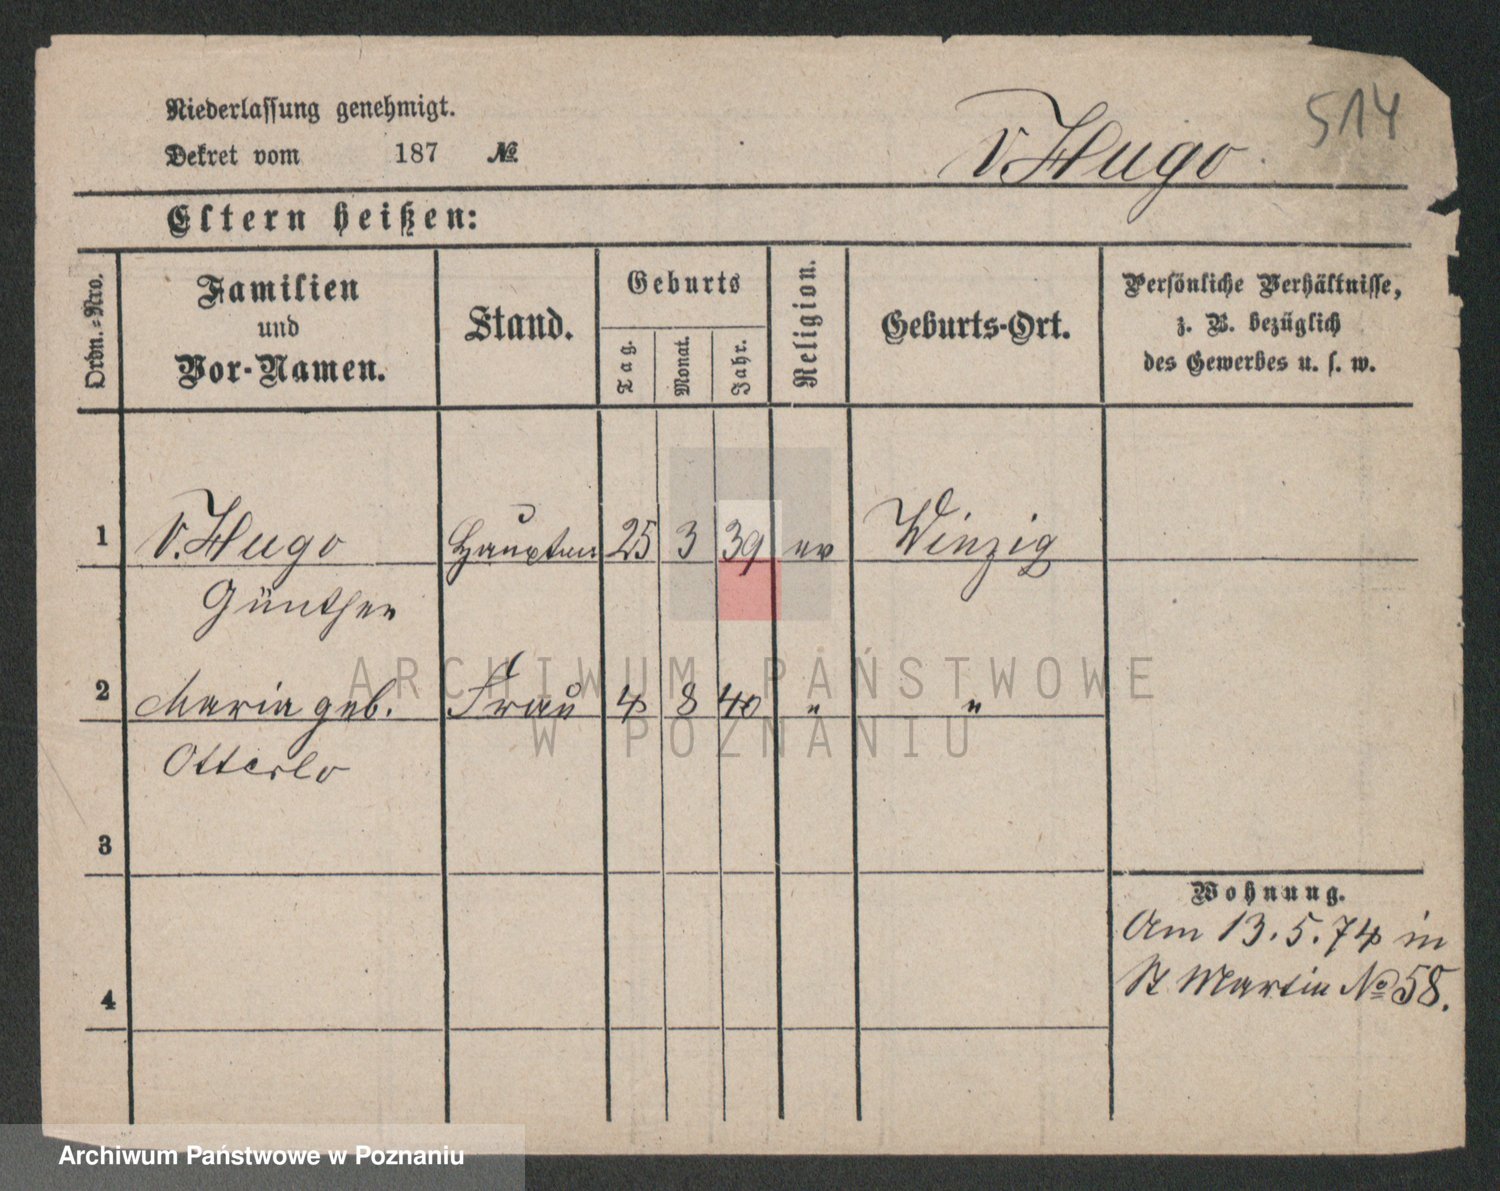 514
Niederlassung genehmigt.
v. Hugo
Dekret vom 187 №
Eltern heißen:
Ordn.-Nro.
Familien
und
Vor-Namen.
Stand.
Geburts
Tag.
Monat.
Jahr.
Religion.
Geburts-Ort.
Persönliche Verhältnisse,
z. B. bezüglich
des Gewerbes u. s. w.
1 v. Hugo Hauptm 25 3 39 ev Winzig
Günther
2 Maria geb. Frau 4 8 40 " "
Otterlo
3
Wohnung.
Am 13.5.74 in
St Martin № 58.
4
ARCHIWUM PAŃSTWOWE
W POZNANIU
Archiwum Państwowe w Poznaniu